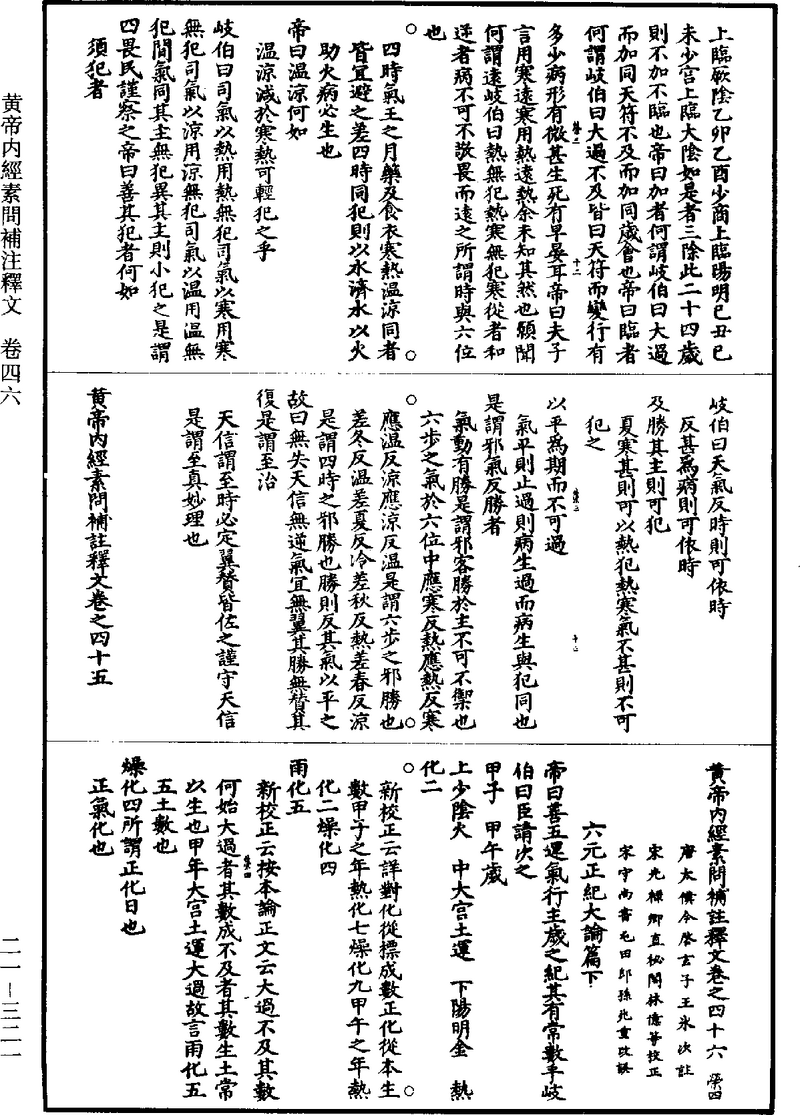 上臨厥陰乙卯乙酉少商上臨陽明己丑己
未少宮上臨大陰如是者三除此二十四歲
則不加不臨也帝曰加者何謂岐伯曰大過
而加同天符不及而加同歲會也帝曰臨者
何謂岐伯曰大過不及皆曰天符而變行有
多少病形有微甚生死有早晏耳帝曰夫子
言用寒遠寒用熱遠熱余未知其然也願聞
何謂遠岐伯曰熱無犯熱寒無犯寒從者和
逆者病不可不敬畏而遠之所謂時與六位
也
四時氣王之月藥及食衣寒熱溫涼同者
皆宜避之差四時同犯則以水濟水以火
助火病必生也
帝曰溫涼何如
溫涼減於寒熱可輕犯之乎
岐伯曰司氣以熱用熱無犯司氣以寒用寒
無犯司氣以涼用涼無犯司氣以溫用溫無
犯間氣同其主無犯異其主則小犯之是謂
四畏民謹察之帝曰善其犯者何如
須犯者
岐伯曰天氣反時則可依時
反甚為病則可依時
及勝其主則可犯
夏寒甚則可以熱犯熱寒氣不甚則不可
犯之
以平為期而不可過
氣平則止過則病生過而病生與犯同也
是謂邪氣反勝者
氣動有勝是謂邪客勝於主不可不禦也
六步之氣於六位中應寒反熱應熱反寒
應溫反涼應涼反溫是謂六步之邪勝也
差冬反溫差夏反冷差秋反熱差春反涼
是謂四時之邪勝也勝則反其氣以平之
故曰無失天信無逆氣宜無翼其勝無贊其
復是謂至治
天信謂至時必定翼贊皆佐之謹守天信
是謂至真妙理也
黃帝內經素問補註釋文卷之四十五
黃帝內經素問補註釋文卷之四十六 榮四
唐太僕令啓玄子王氷次註
宋光祿卿直秘閣林億等校正
宋守尚書屯田郎孫兆重改誤
六元正紀大論篇下
帝曰善五運氣行主歲之紀其有常數乎岐
伯曰臣請次之
甲子 甲午歲
上少陰火 中大宮土運 下陽明金 熱
化二
新校正云詳對化從標成數正化從本生
數甲子之年熱化七燥化九甲午之年熱
化二燥化四
雨化五
新校正云按本論正文云大過不及其數
何始大過者其數成不及者其數生土常
以生也甲年大宮土運大過故言雨化五
五土數也
燥化四所謂正化日也
正氣化也
黄帝内經素問補注釋文 卷四六
二一—三二一